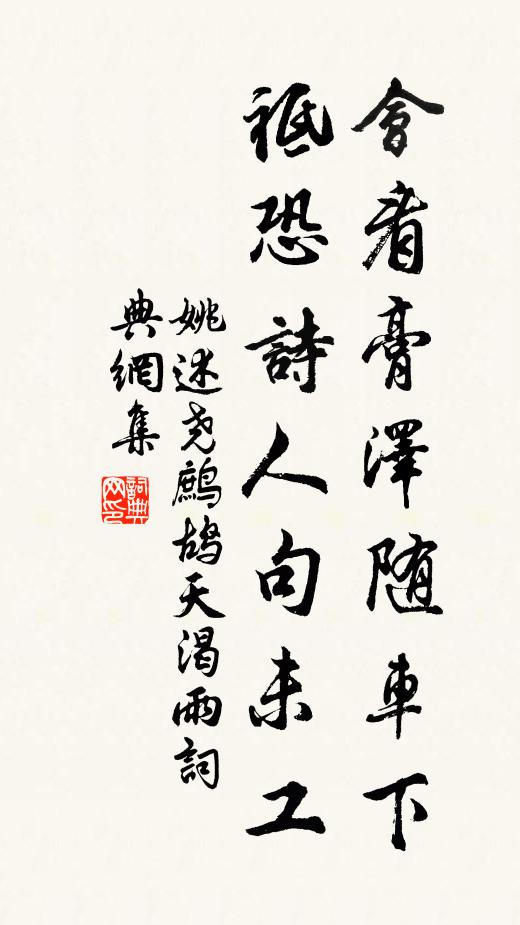 會看膏澤随車下
祗恐詩人句未工
姚述尧鷓鴣天渴雨詞
典網集
詞典網印